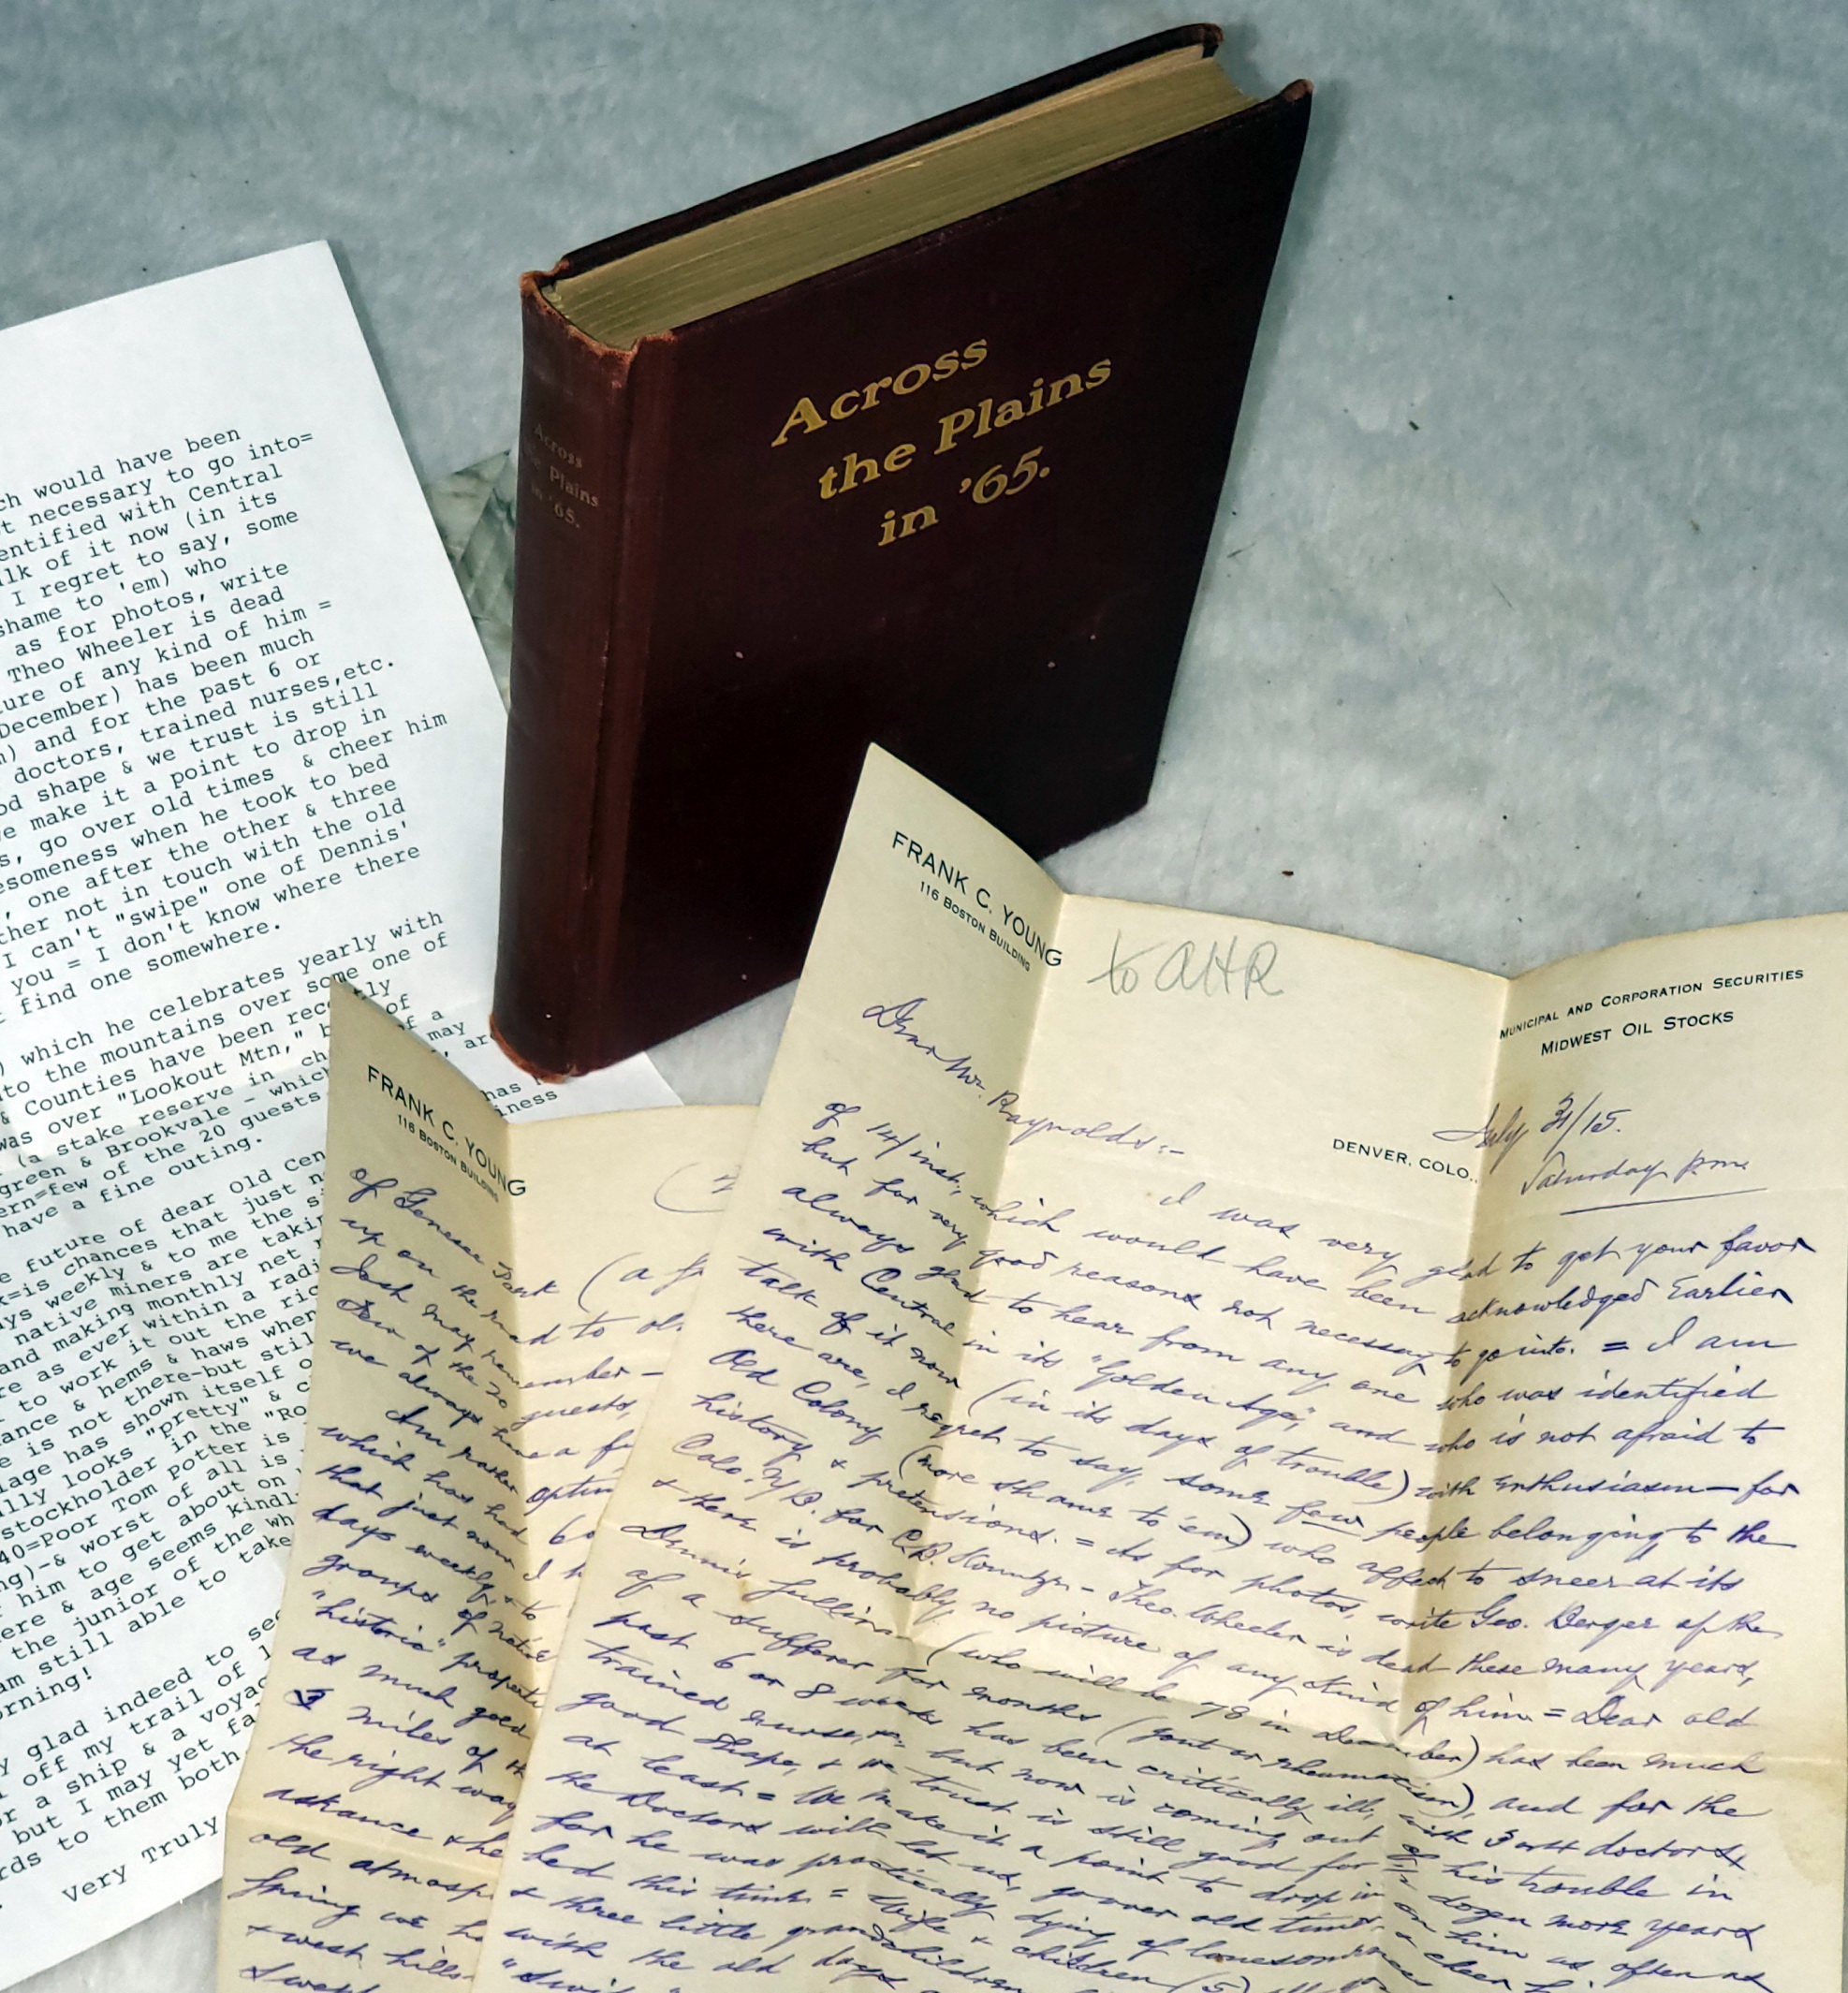 Across
the Plains
in '65.
Across
the Plains
in '65.
ch would have been
t necessary to go into=
entified with Central
lk of it now (in its
I regret to say, some
shame to 'em) who
as for photos, write
Theo Wheeler is dead
ture of any kind of him =
December) has been much
) and for the past 6 or
doctors, trained nurses,etc.
od shape & we trust is still
we make it a point to drop in
s, go over old times & cheer him
esomeness when he took to bed
, one after the other & three
ther not in touch with the old
I can't "swipe" one of Dennis'
you = I don't know where there
find one somewhere.
) which he celebrates yearly with
to the mountains over some one of
& Counties have been recently
was over "Lookout Mtn,"
(a stake reserve in
green & Brookvale - which
ern=few of the 20 guests
have a fine outing.
e future of dear Old Cen
=is chances that just n
ys weekly & to me the
native miners are takin
and making monthly net
re as ever within a radi
to work it out the ric
ance & hems & haws when
e is not there-but stil
lage has shown itself o
lly looks "pretty" & c
stockholder in the "Ro
40=Poor Tom Potter is
ng)-& worst of all is
him to get about on
ere & age seems kindl
the junior of the wh
am still able to take
orning!
y glad indeed to see
off my trail of l
or a ship & a voyag
but I may yet fa
rds to them both
Very Truly
FRANK C. YOUNG
116 BOSTON BUILDING
of Genesee Park (a
up on the road to ol
Josh may remember -
Few of the 20 guests,
we always have a f
Am rather optim
which has had 60
that just now I h
days weekly & to
groups of native
"historic" properti
as much gold
miles of th
the right way
askance & he
old atmosp
Spring we h
& west hills
swept
FRANK C. YOUNG
116 BOSTON BUILDING
to AHR
MUNICIPAL AND CORPORATION SECURITIES
MIDWEST OIL STOCKS
DENVER, COLO., July 31/15.
Saturday pm
Dear Mr. Raynolds:-
I was very glad to get your favor
of 14/inst, which would have been acknowledged earlier
but for very good reasons not necessary to go into. = I am
always glad to hear from any one who was identified
with Central in its "Golden Age," and who is not afraid to
talk of it now (in its days of trouble) with enthusiasm - for
there are, I regret to say, some few people belonging to the
Old Colony (more shame to 'em) who affect to sneer at its
history & pretensions. = As for photos, write Geo. Berger of the
Colo. N/B. for C.B. Kountze - Theo. Wheeler is dead these many years,
& there is probably no picture of any kind of him = Dear old
Dennis Sullivan (who will be 78 in December) has been much
of a sufferer for months (gout or rheumatism), and for the
past 6 or 8 weeks has been critically ill, with 3 or 4 doctors,
trained nurses, but now is coming out of his trouble in
good shape, & we trust is still good for a dozen more years
at least = We make it a point to drop in on him as often as
the Doctors will let us, go over old times & cheer
for he was practically dying of lonesomeness
bed this time = Wife & children (5)
& three little grandchildren
with the old days
"swipe"